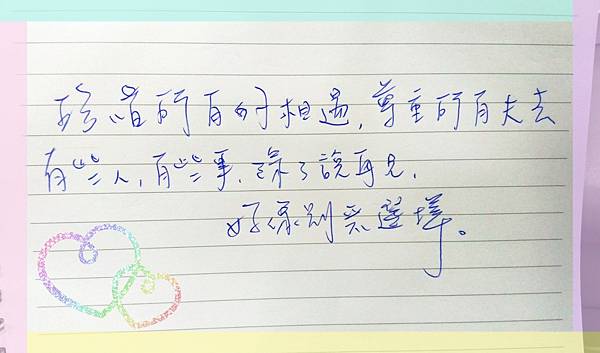 珍惜所有的相遇,尊重所有失去
有些人,有些事,除了說再見,
好像別无選擇。